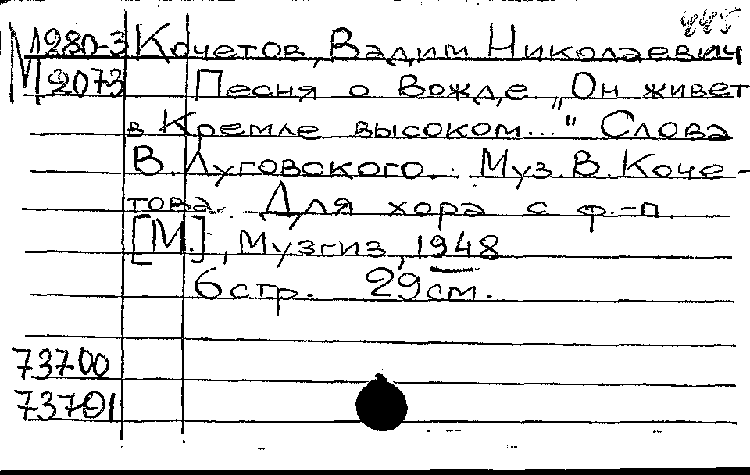 445
М 1280-3 Кочетов, Вадим Николаевич
М 2073 Песня о Вожде „Он живет
в Кремле высоком..." Слова
В. Луговского. Муз. В. Коче-
това. Для хора с ф.-п.
[М.], Музгиз, 1948
6 стр. 29 см.
73700
73701